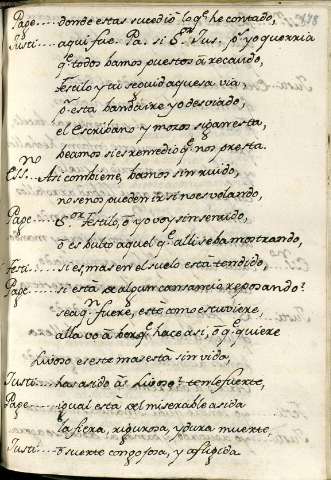 178
Page.... donde estas sucedió lo q̃ he contado,
Justi.... aqui fue. Pa. si Sʳ. Jus. pᵉ. yo querria
q̃ todos bamos puestos â recaudo,
Festilo y tu seguid aquesa via,
pᵒ. está banda ire yo desviado,
el Escribano y mozos sigan esta,
beamos si es remedio q̃ nos presta.
Essⁿᵒ. Asi combiene, bamos sin ruido,
no se nos pueden ir si no es volando,
Page.... Sᵒʳ Festilo, ô yo voy sin sentido,
ô es bulto aquel q̃ alli se ba mostrando,
Festi.... si es, mas en el suelo está tendido,
Page.... si está de algun cansancio reposando?
sea qⁿ. fuere, esté como estuviere,
alla vo â ber q̃ hace asi, ô q̃ quiere
Liuso es este mas está sin vida,
Justi.... has asido â Liuso? tenle fuerte,
Page.... igual está del miserable asida
la fiera, rigurosa, y dura muerte,
Justi.... ô suerte congojosa, y afligida